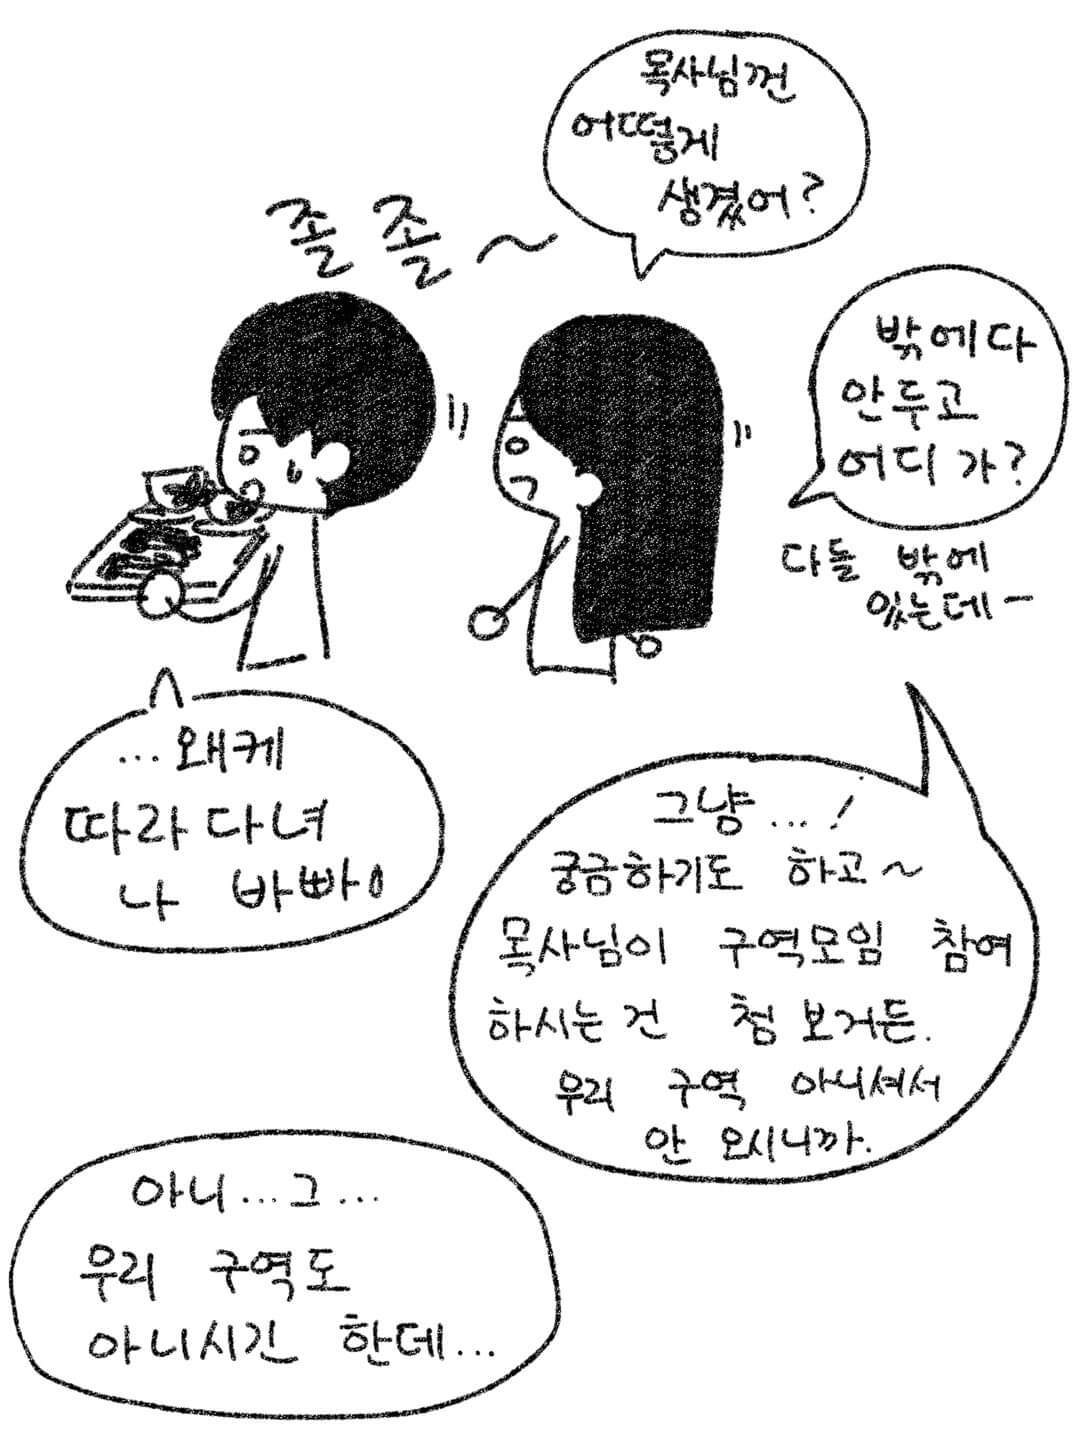 목사님껀
어떻게
생겼어?
졸 졸 ~
밖에다
안두고
어디 가?
다들 밖에
있는데-
...왜케
따라다녀
나 바빠ㅇ
그냥...!
궁금하기도 하고~
목사님이 구역모임 참여
하시는건 첨 보거든.
우리 구역 아니셔서
안 오시니까.
아니...그...
우리 구역도
아니시긴 한데...